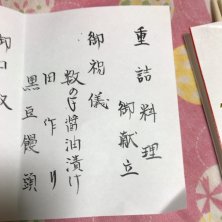 重詰料理
御献立
御祝儀
数の子醤油漬け
田作り
黒豆饅頭